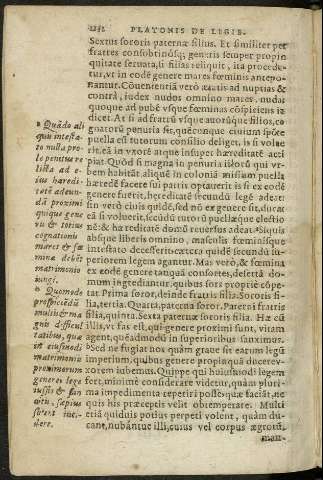 PLATONIS DE LEGIB.
Sextus sororis paternæ filius. Et similiter per
fratres consobrinosq; generis semper propin
quitate seruata, si filias reliquit, ita procede-
tur, vt in eodē genere mares fœminis antepo-
nantur. Cōuenientiā verò ætatis ad nuptias &
contrà, iudex nudos omnino mares, nudas
quoque ad vsque fœminas cōspiciens iu
dicet. At si ad fratrū vsque auorūque filios, co
gnatorū penuria sit, quēcunque ciuium ipsæ
puella cū tutorum consilio deliget, is si volue
rit, eā in vxorē atque insuper hæreditatē acci
piat. Quòd si magna in penuria istorū qui vr-
bem habitāt, aliquē in coloniā missum puella
hæredē facere sui patris optauerit, is si ex eodē
genere fuerit, hæreditatē secundū legē adeat:
sin verò ciuis quidē, sed nō ex genere sit, ducat
eā si voluerit, secūdū tutorū puellæque electio
nē: & hæreditatē domū reuersus adeat. Siquis
absque liberis omnino, masculis fœminisque
intestato decesserit, cætera quidē secundū su-
periorem legem agantur. Mas verò, & fœmina
ex eodē genere tanquā consortes, desertā do-
mum ingrediantur, quibus sors propriè cōpe-
tat. Prima soror, deinde fratris filia. Sororis fi-
lia, tertia. Quarta, paterna soror. Paterni fratris
filia, quinta. Sexta paternæ sororis filia. Hæ cū
illis, vt fas est, qui genere proximi sunt, vitam
agent, quēadmodū in superioribus sanximus.
b Sed ne fugiat nos quàm graue sit earum legū
imperium, quibus genere propinquā ducere v-
xorem iubemus. Quippe qui huiusmodi legem
fert, minimè considerare videtur, quàm pluri-
ma impedimenta reperiri possēque faciāt, ne
quis his præceptis velit obtemperare. Multi
etiā quiduis potius perpeti volent, quàm du-
cant, nubāntue illi, cuius vel corpus ægrotū,
a Quādo ali
quis intesta-
to nulla pro-
le penitus re
licta ad e-
ius hæredi-
tatē adeun-
dā proximi
quique gene
ris & totius
cognationis
mares & fœ
minæ debēt
matrimonio
iungi.
b Quomodo
prospiciēdū
multis & ma
gnis difficul
tatibus, quæ
ut eiusmodi
matrimoniis
proximorum
generis lege
iussis & san
citis, sæpius
solent